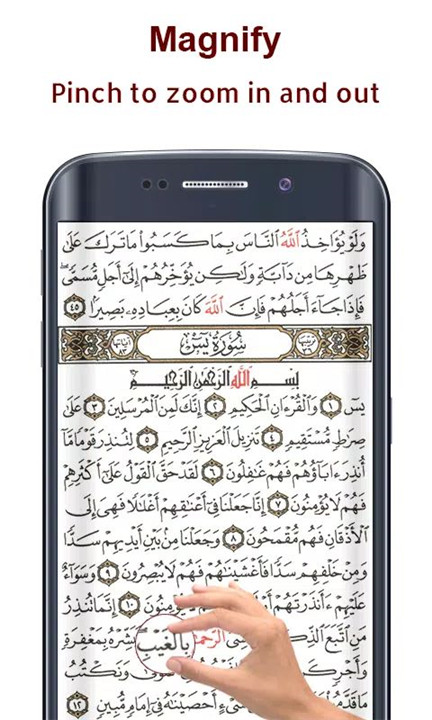 Magnify
Pinch to zoom in and out
وَلَوْ يُؤَاخِذُ ٱللَّهُ ٱلنَّاسَ بِمَا كَسَبُوا۟ مَا تَرَكَ عَلَىٰ
ظَهْرِهَا مِن دَآبَّةٍ وَلَٰكِن يُؤَخِّرُهُمْ إِلَىٰٓ أَجَلٍ مُّسَمًّى
فَإِذَا جَآءَ أَجَلُهُمْ فَإِنَّ ٱللَّهَ كَانَ بِعِبَادِهِۦ بَصِيرًۢا ٤٥
سُورَةُ يسٓ
بِسْمِ ٱللَّهِ ٱلرَّحْمَٰنِ ٱلرَّحِيمِ
يسٓ ١ وَٱلْقُرْءَانِ ٱلْحَكِيمِ ٢ إِنَّكَ لَمِنَ ٱلْمُرْسَلِينَ ٣ عَلَىٰ
صِرَٰطٍ مُّسْتَقِيمٍ ٤ تَنزِيلَ ٱلْعَزِيزِ ٱلرَّحِيمِ ٥ لِتُنذِرَ قَوْمًا مَّآ
أُنذِرَ ءَابَآؤُهُمْ فَهُمْ غَٰفِلُونَ ٦ لَقَدْ حَقَّ ٱلْقَوْلُ عَلَىٰٓ أَكْثَرِهِمْ
فَهُمْ لَا يُؤْمِنُونَ ٧ إِنَّا جَعَلْنَا فِىٓ أَعْنَٰقِهِمْ أَغْلَٰلًا فَهِىَ إِلَى
ٱلْأَذْقَانِ فَهُم مُّقْمَحُونَ ٨ وَجَعَلْنَا مِنۢ بَيْنِ أَيْدِيهِمْ سَدًّا
وَمِنْ خَلْفِهِمْ سَدًّا فَأَغْشَيْنَٰهُمْ فَهُمْ لَا يُبْصِرُونَ ٩ وَسَوَآءٌ
عَلَيْهِمْ ءَأَنذَرْتَهُمْ يُؤْمِنُونَ ١٠ إِنَّمَا تُنذِرُ
مَنِ ٱتَّبَعَ بِٱلْغَيْبِ بِمَغْفِرَةٍ
وَنَكْتُبُ
مَا قَدَّمُوا۟ أَحْصَيْنَٰهُ فِىٓ إِمَامٍ مُّبِينٍ ١٢